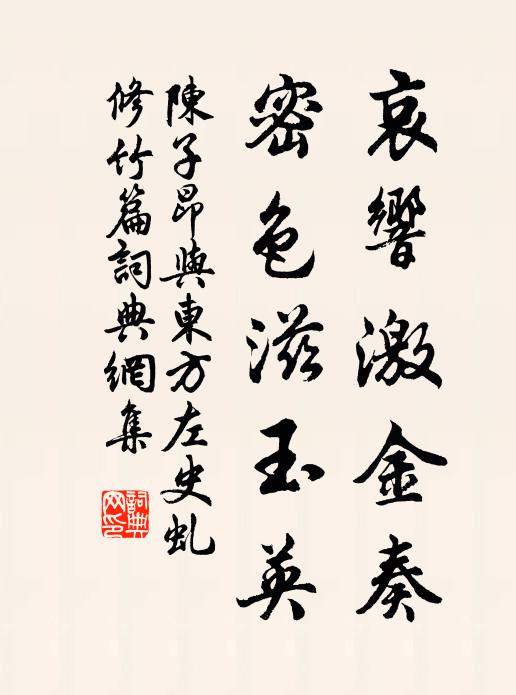 哀響激金奏
密色滋玉英
陳子昂與東方左史虬
修竹篇詞典網集
詞典
网印